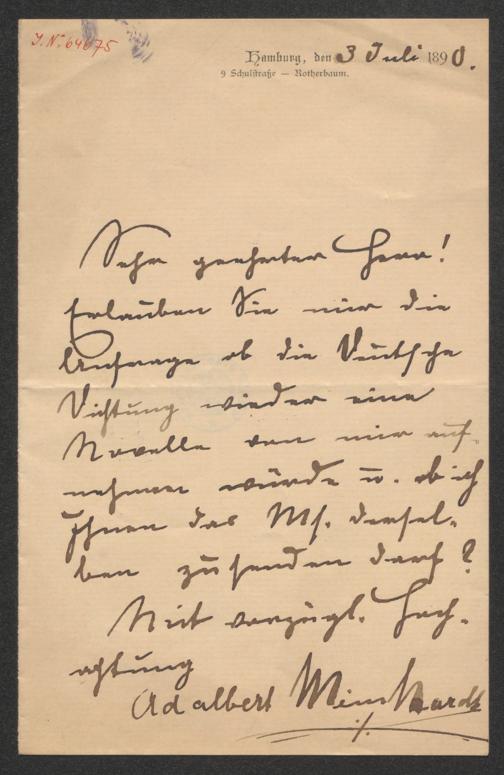 J.N. 64675
Hamburg, den 3 Juli 1890.
9 Schulstraße — Rotherbaum.
Sehr geehrter Herr!
Erlauben Sie mir die
Anfrage ob die Deutsche
Dichtung wieder eine
Novelle von mir auf-
nehmen würde u. ob ich
Ihnen das Ms. dersel-
ben zusenden darf?
Mit vorzügl. Hoch-
achtung
Adalbert Meinhardt